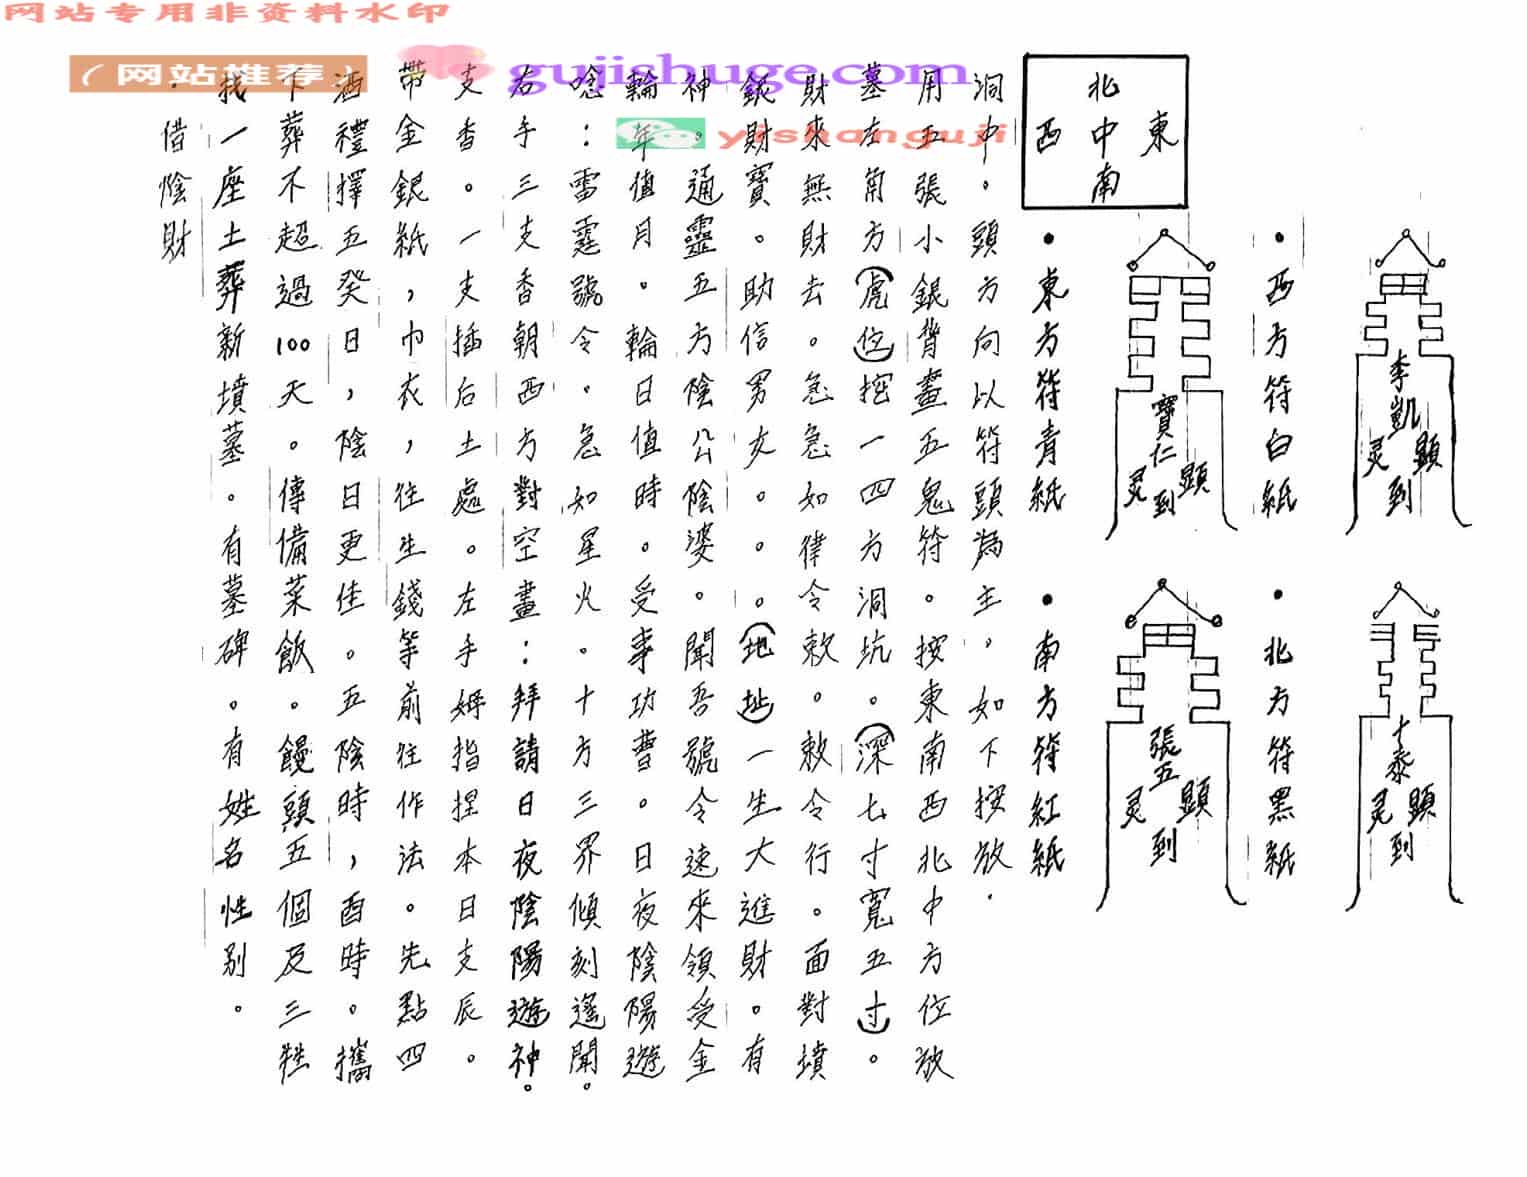 网站专用非资料水印
(网站推荐)
gujishuge.com
yishanguji
・借陰財
找一座土葬新墳墓。有墓碑。有姓名性别。
下葬不超過100天。傳備菜飯。饅頭五個及三牲
酒禮擇五癸日,陰日更佳。五陰時,酉時。攜
帶金銀紙,巾衣,往生錢等前往作法。先點四
支香。一支插后土處。左手姆指捏本日支辰。
右手三支香朝西方對空畫:拜請日夜陰陽遊神。
唸:雷霆號令。急如星火。十方三界傾刻遙聞。
輪年值月。輪日值時。受事功曹。日夜陰陽遊
神。通靈五方陰公陰婆。聞吾號令速來領受金
銀財寶。助信男女。。(地址)一生大進財。有
財來無財去。急急如律令敕。敕令行。面對墳
墓左角方(虎位)挖一四方洞坑。(深七寸寬五寸)。
用五張小銀背畫五鬼符。按東南西北中方位放
洞中。頭方向以符頭為主。如下按放.
北
西中東
南
・東方符青紙
寶仁
灵顯
到
・南方符紅紙
張五
灵顯
到
・西方符白紙
李凱
灵顯
到
・北方符黑紙
十泰
灵顯
到